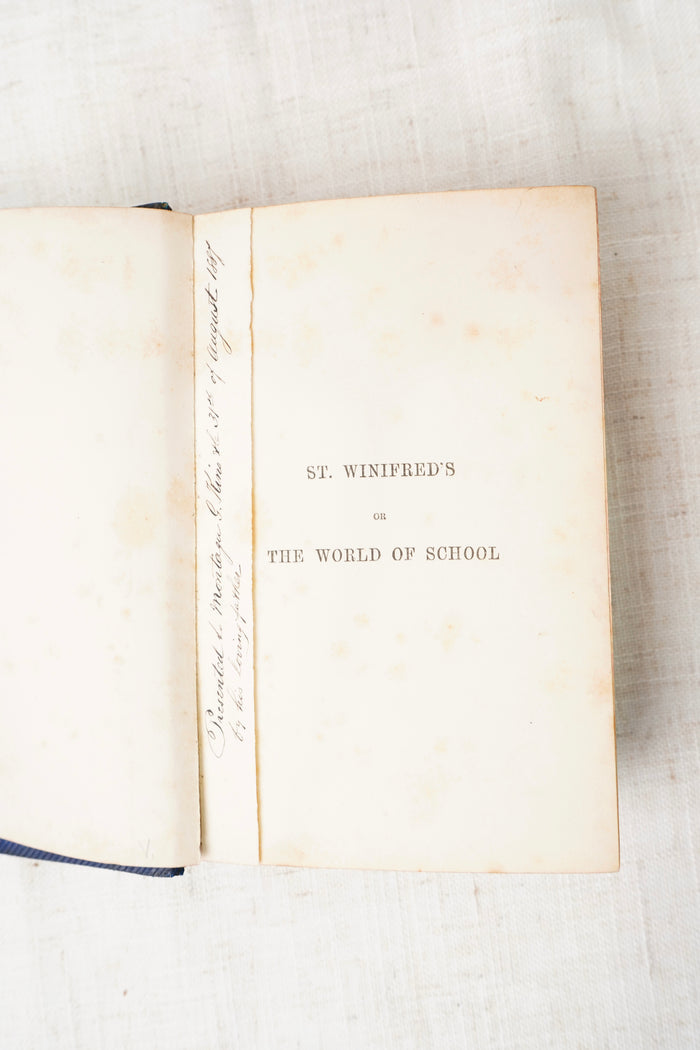 Presented to Montague G. King the 31st of August 1887
by his loving father
ST. WINIFRED'S
OR
THE WORLD OF SCHOOL